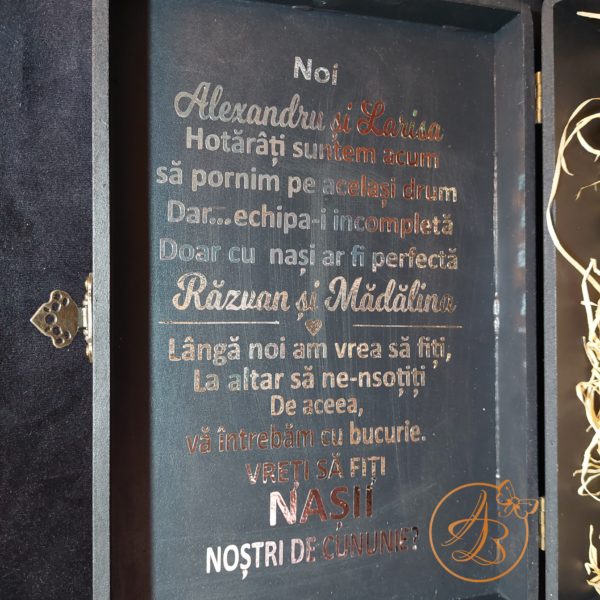 Noi
Alexandru și Larisa
Hotărâți suntem acum
să pornim pe același drum
Dar...echipa-i incompletă
Doar cu nași ar fi perfectă
Răzvan și Mădălina
Lângă noi am vrea să fiți,
La altar să ne-nsoțiți
De aceea,
vă întrebăm cu bucurie.
VREȚI SĂ FIȚI
NAȘII
NOȘTRI DE CUNUNIE?
AB